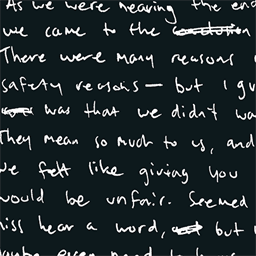 As we were nearing the end
we came to the conclusion
There were many reasons
safety reasons — but I gu
was that we didn't wa
They mean so much to us, and
we felt like giving you
would be unfair. Seemed
iss hear a word, but
aybe even need to